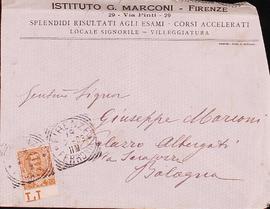 ISTITUTO G. MARCONI - FIRENZE
29 - Via Pinti - 29
SPLENDIDI RISULTATI AGLI ESAMI - CORSI ACCELERATI
LOCALE SIGNORILE - VILLEGGIATURA
Gentium Signor
Giuseppe Marconi
Palazzo Albergati
Via Saragozza
Bologna